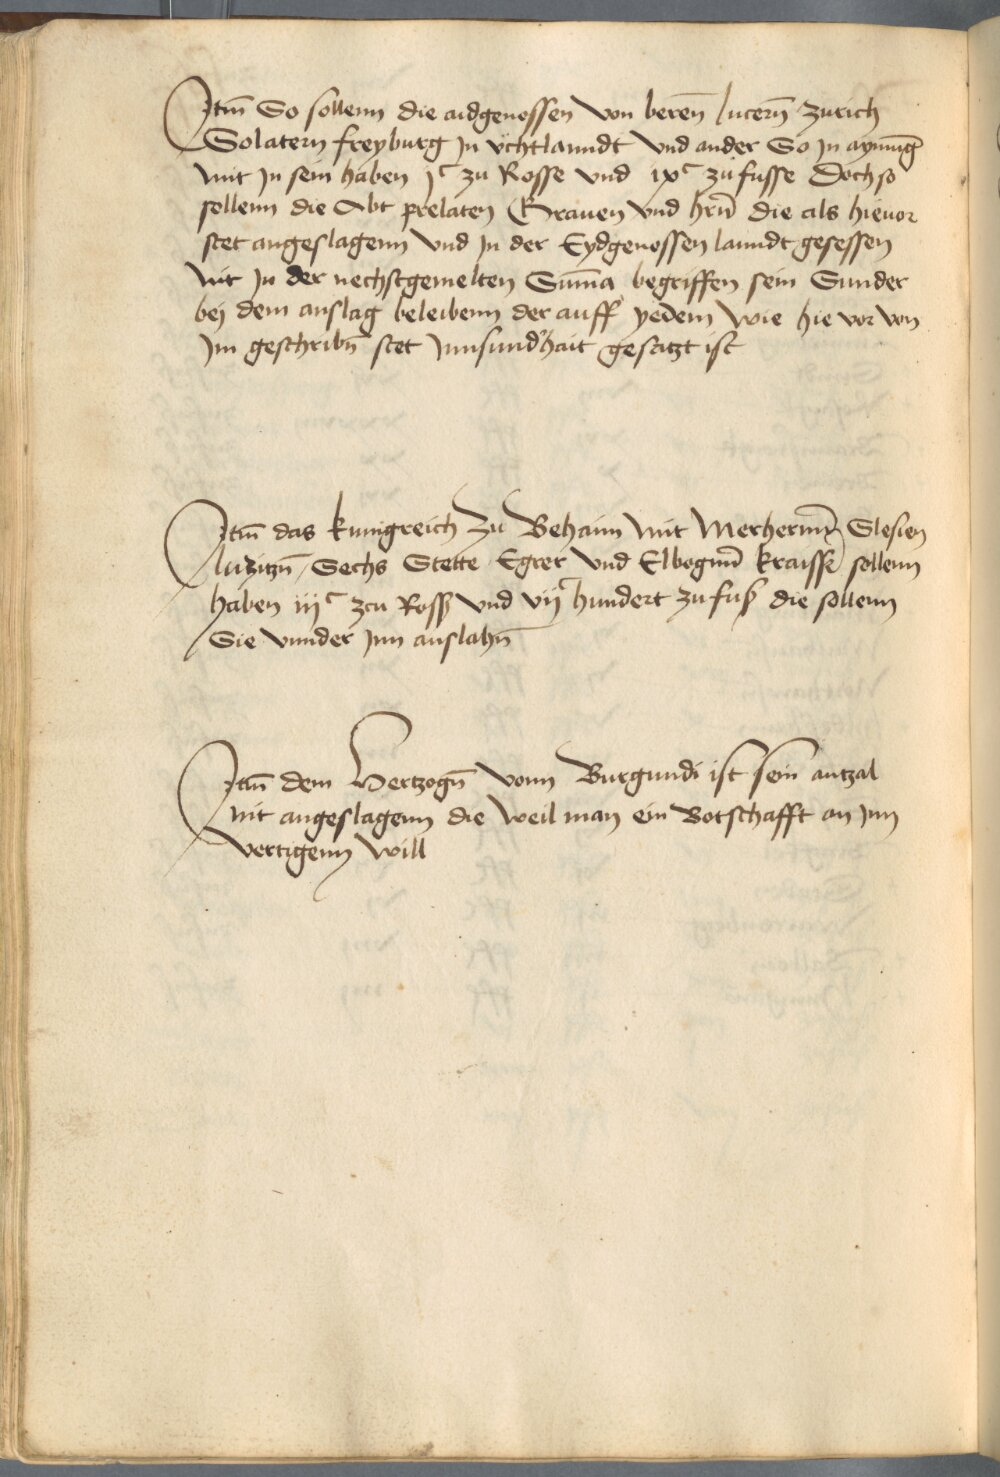 Itm̄ So sollenn die aidgenossen von beren̄ lucern̄ zurich
Solatern freyburg Jn uchtlanndt vnd ander So Jn aynunḡ
mit Jn sein haben jᶜ zu Rosse vnd ixᶜ zu fusse Doch so
sollenn die Abt prelaten Grauen vnd hrn̄ die als hieuor
stet angeslagenn vnd Jn der Eydgenossen lanndt gesessen
nit Jn der nechstgemelten Sum̄a begriffen sein Sunder
bej dem anslag beleibenn der auff yedem wie hie vor von
Jm geschribn̄ stet Jnnsund'hait gesatzt ist
Itm̄ das kunigreich zu Behaim mit Merhernn̄ Slesien
luzitzn̄ / Sechs Stette Egrer vnd Elbognn̄ kraisse sollenn
haben iijᶜ zcu Ross vnd vijᶜ hundert zu fuß die sollenn
Sie vnnder Jnn anslahn̄
Itm̄ dem Hertzogn̄ vonn Burgundi ist sein antzal
nit angeslagenn die weil man ein Botschafft an Jnn
vertigenn will